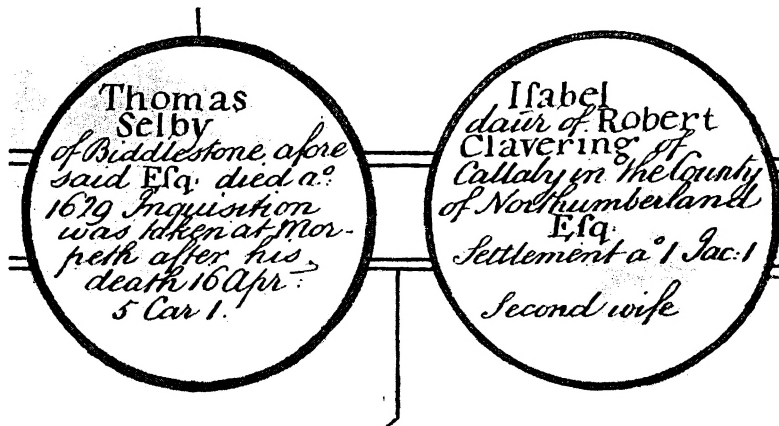 Thomas
Selby
of Biddlestone afore
said Eſq. died a.º
1629 Inquisition
was taken at Mor-
peth after his
death 16 Apr:
5 Car 1.
Iſabel
daur of Robert
Clavering of
Callaly in the County
of Northumberland
Eſq.
Settlement aº 1 Jac: 1
Second wife